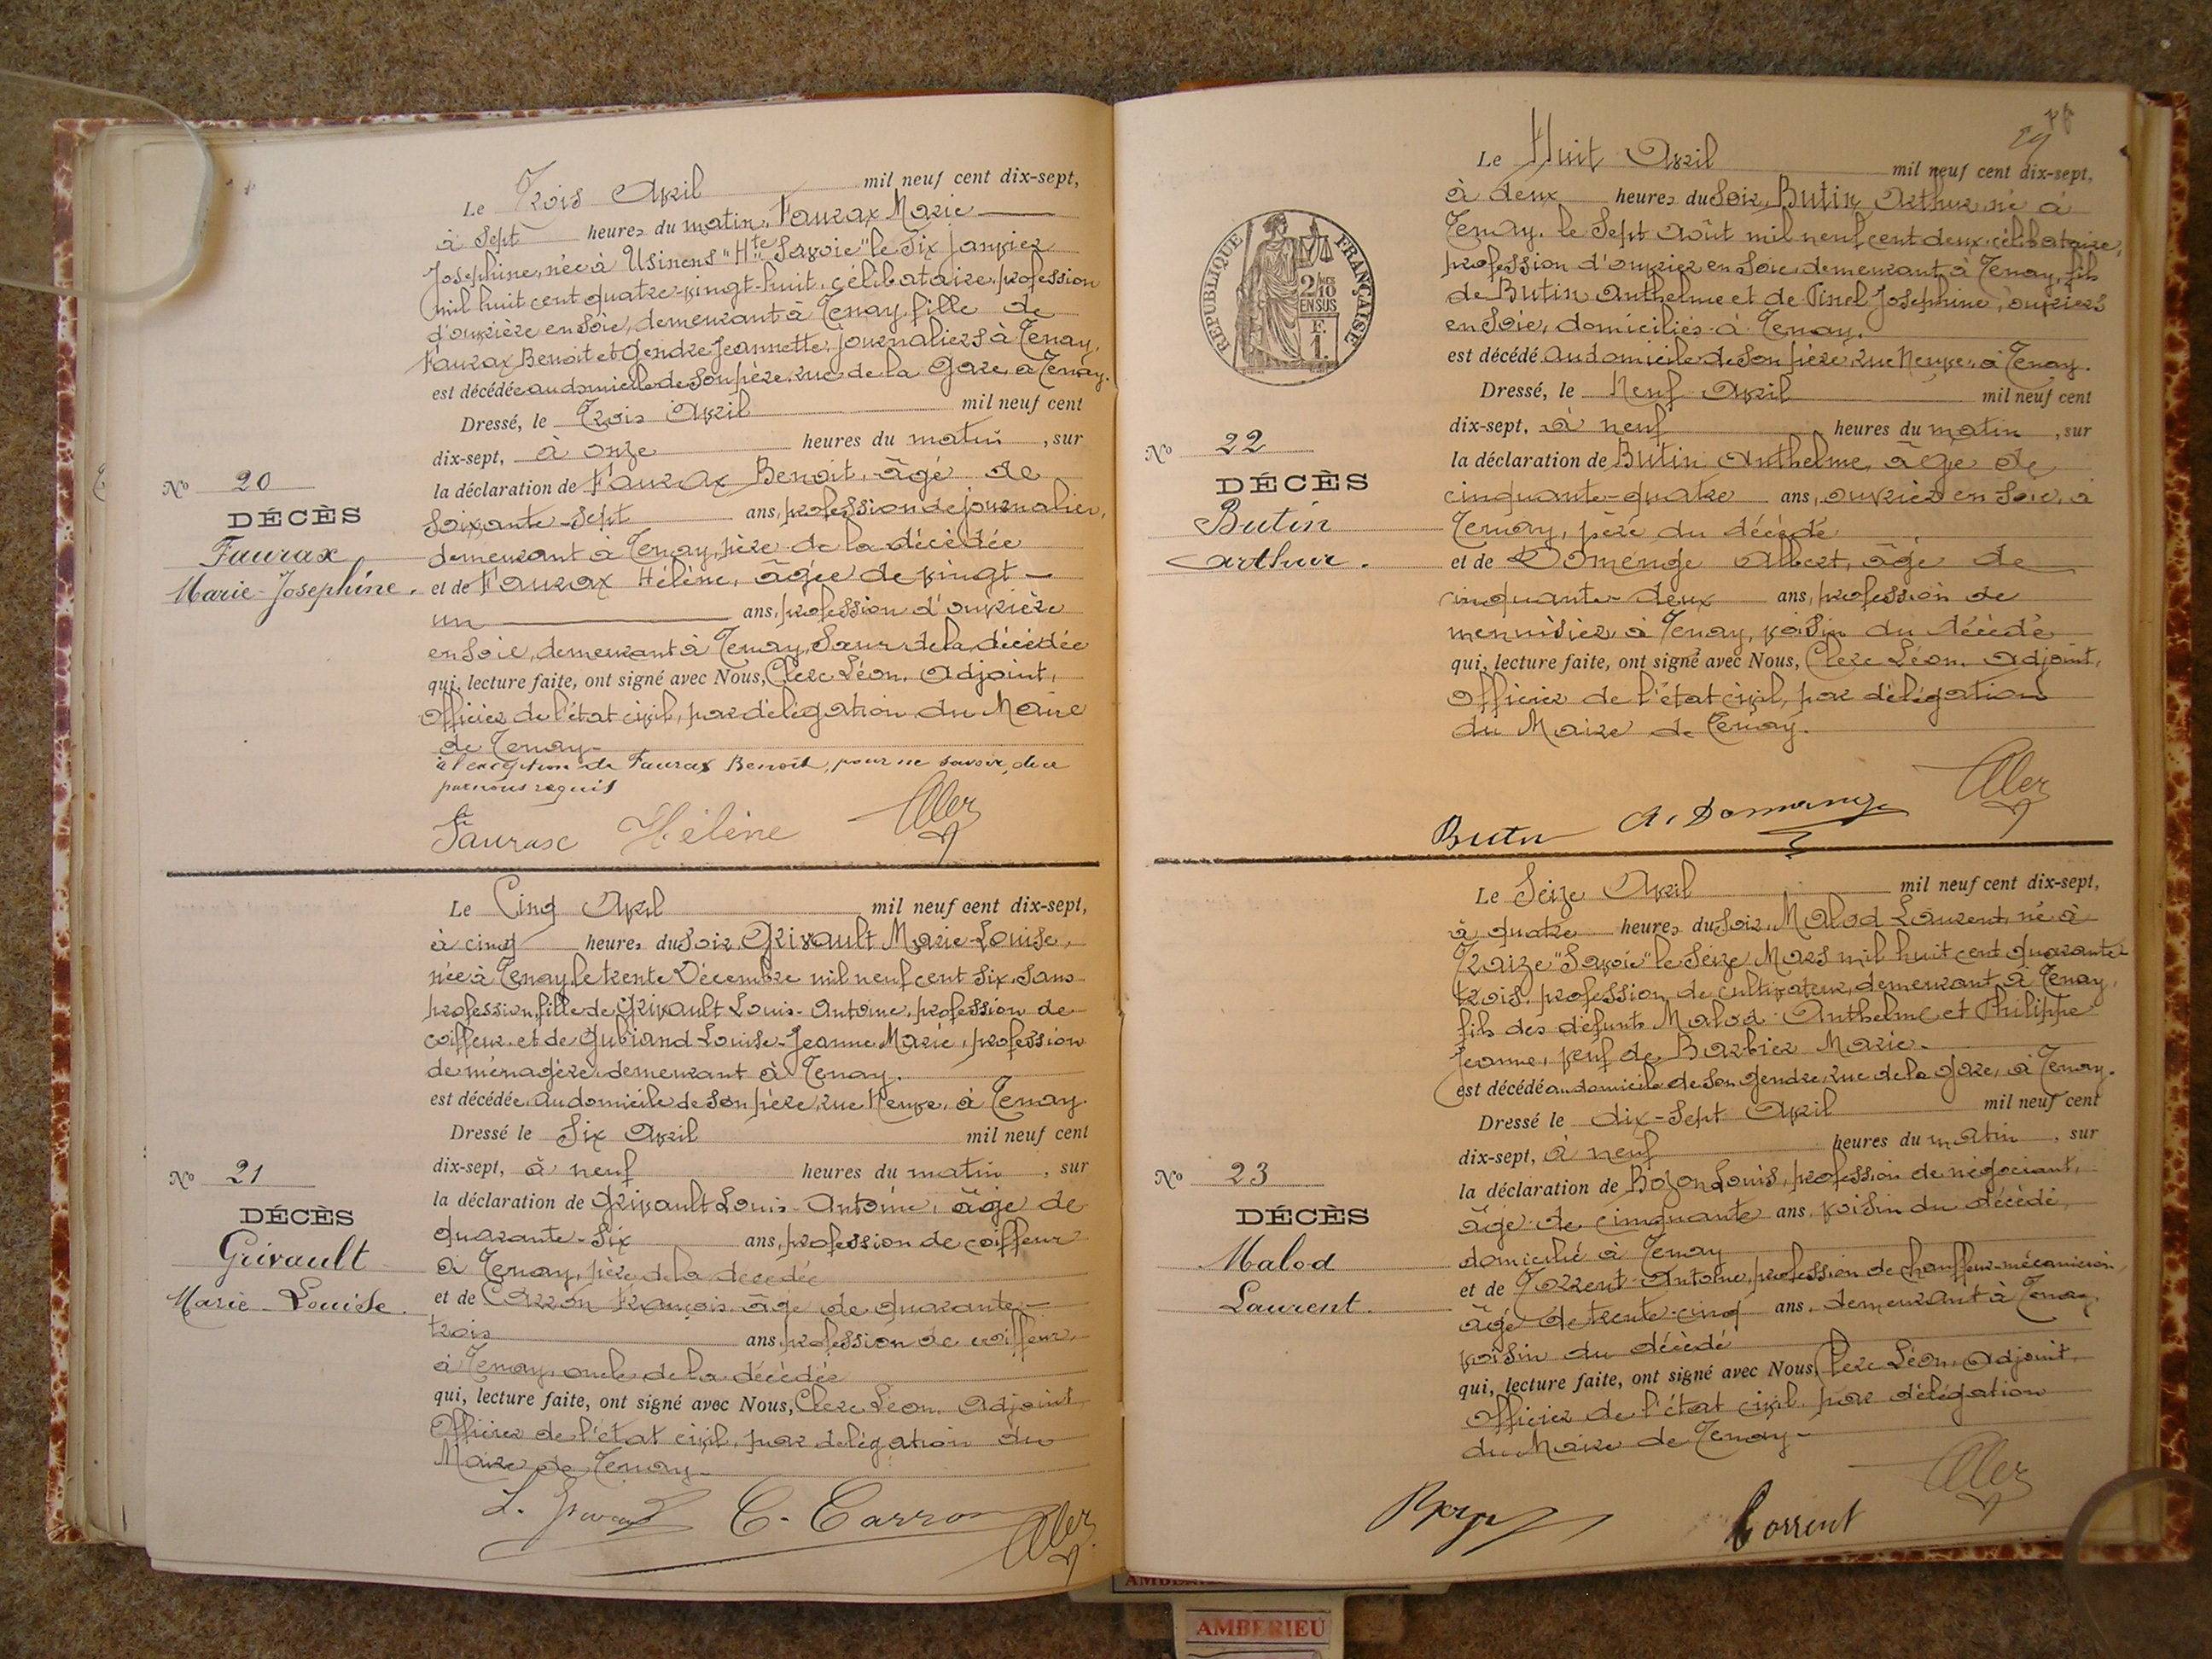 Le Trois Avril mil neuf cent dix-sept,
à sept heures du matin, Faurax Marie
Josephine, née à Usinens "Hte Savoie" le six janvier
mil huit cent quatre-vingt-huit, célibataire, profession
d'ouvrière en soie, demeurant à Tenay, fille de
Faurax Benoit et Gendre Jeannette, journaliers à Tenay,
est décédée au domicile de son père, rue de la Gare, à Tenay.
Dressé, le Trois Avril mil neuf cent
dix-sept, à onze heures du matin, sur
la déclaration de Faurax Benoit, âgé de
soixante-sept ans, profession de journalier,
demeurant à Tenay, père de la décédée
et de Faurax Hélène, âgée de vingt-
un ans, profession d'ouvrière
en soie, demeurant à Tenay, sœur de la décédée
qui, lecture faite, ont signé avec Nous, Clerc Léon, Adjoint,
officier de l'état civil, par délégation du Maire
de Tenay-
à l'exception de Faurax Benoit, pour ne savoir, de ce
par nous requis
Faurax Hélène
No 20
DÉCÈS
Faurax
Marie-Josephine.
Le Cinq Avril mil neuf cent dix-sept,
à cinq heures du soir, Grivault Marie-Louise,
née à Tenay le trente Décembre mil neuf cent six, sans
profession, fille de Grivault Louis-Antoine, profession de
coiffeur et de Gubiand Louise-Jeanne Marie, profession
de ménagère, demeurant à Tenay.
est décédée au domicile de son père, rue Neuve, à Tenay.
Dressé le Six Avril mil neuf cent
dix-sept, à neuf heures du matin, sur
la déclaration de Grivault Louis-Antoine, âgé de
quarante-six ans, profession de coiffeur
à Tenay, père de la décédée
et de Carron François âgé de quarante-
trois ans, profession de coiffeur,
à Tenay, oncle de la décédée
qui, lecture faite, ont signé avec Nous, Clerc Léon, Adjoint
Officier de l'état civil, par délégation du
Maire de Tenay-
C. Carron
No 21
DÉCÈS
Grivault
Marie-Louise.
29
Le Huit Avril mil neuf cent dix-sept,
à deux heures du soir, Butin Arthur, né à
Tenay, le sept août mil neuf cent deux, célibataire,
profession d'ouvrier en soie, demeurant à Tenay, fils
de Butin Anthelme et de Pinel Josephine, ouvriers
en soie, domiciliés à Tenay.
est décédé au domicile de son père, rue Neuve, à Tenay.
Dressé, le Neuf Avril mil neuf cent
dix-sept, à neuf heures du matin, sur
la déclaration de Butin Anthelme, âgé de
cinquante-quatre ans, ouvrier en soie, à
Tenay, père du décédé
et de Domenge Albert, âgé de
cinquante-deux ans, profession de
menuisier à Tenay, voisin du décédé
qui, lecture faite, ont signé avec Nous, Clerc Léon, Adjoint,
officier de l'état civil, par délégation
du Maire de Tenay.
Butin
REPUBLIQUE FRANÇAISE
2/10
EN SUS
F.
1.
No 22
DÉCÈS
Butin
Arthur.
Le Seize Avril mil neuf cent dix-sept,
à quatre heures du soir, Malod Laurent, né à
Traize "Savoie" le seize Mars mil huit cent quarante-
trois, profession de cultivateur, demeurant à Tenay,
fils des défunts Malod Anthelme et Philippe
Jeanne, veuf de Barbier Marie.
est décédé au domicile de son gendre, rue de la Gare, à Tenay.
Dressé le dix-sept Avril mil neuf cent
dix-sept, à neuf heures du matin, sur
la déclaration de Bozon Louis, profession de négociant,
âgé de cinquante ans, voisin du décédé,
domicilié à Tenay
et de Torrent Antoine, profession de chauffeur-mécanicien,
âgé de trente-cinq ans, demeurant à Tenay,
voisin du décédé
qui, lecture faite, ont signé avec Nous, Clerc Léon, Adjoint,
officier de l'état civil, par délégation
du Maire de Tenay-
Torrent
No 23
DÉCÈS
Malod
Laurent.
AMBERIEU